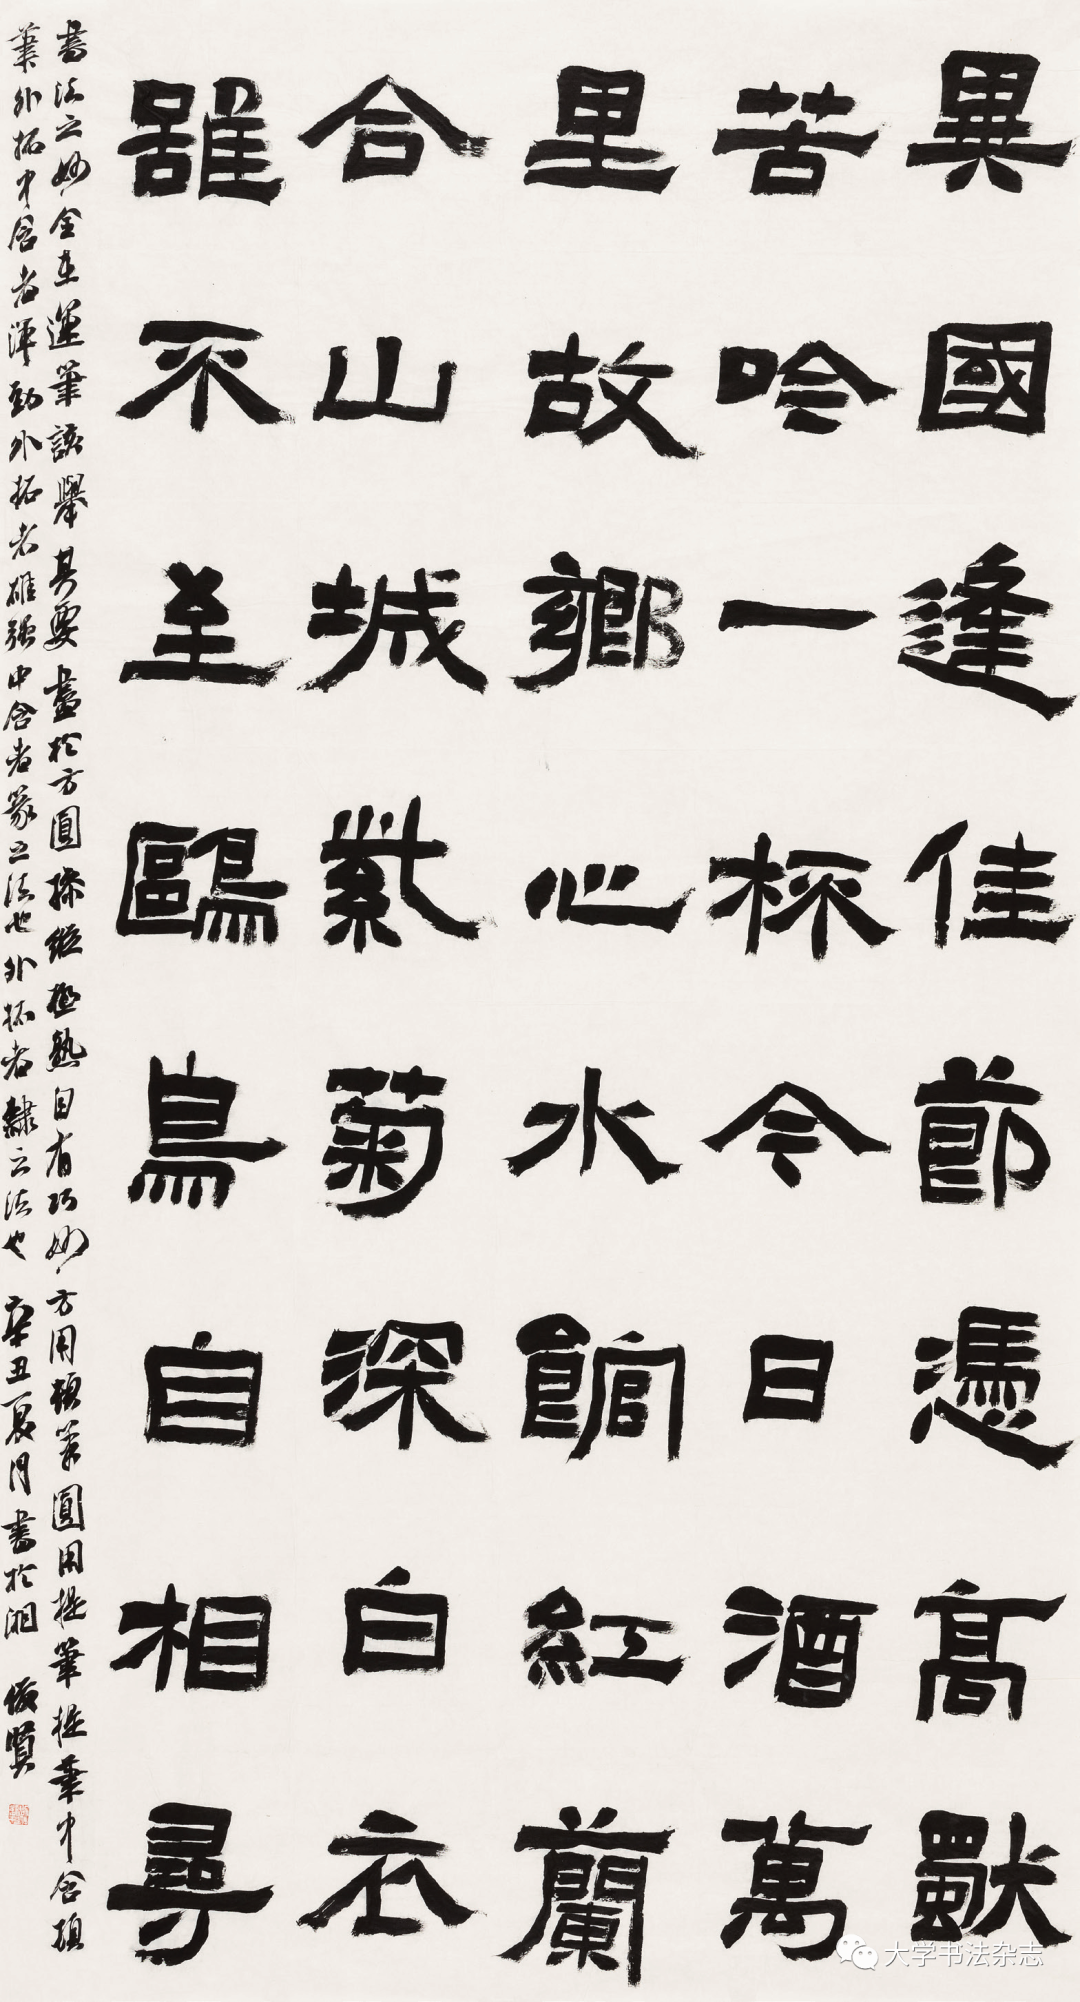 異國逢佳節憑高獸
苦吟一杯今日酒萬
里故鄉心水館紅蘭
合山城紫菊深白衣
雖不至鷗鳥自相尋
書法之妙全在運筆該舉其要盡於方圓操縱極熟自有巧妙方用頓筆圓用提筆提筆中含頓
筆外拓中含者渾勁外拓者雄強中含者篆之法也外拓者隸之法也 辛丑夏月書於湘 俊賢
大学书法杂志